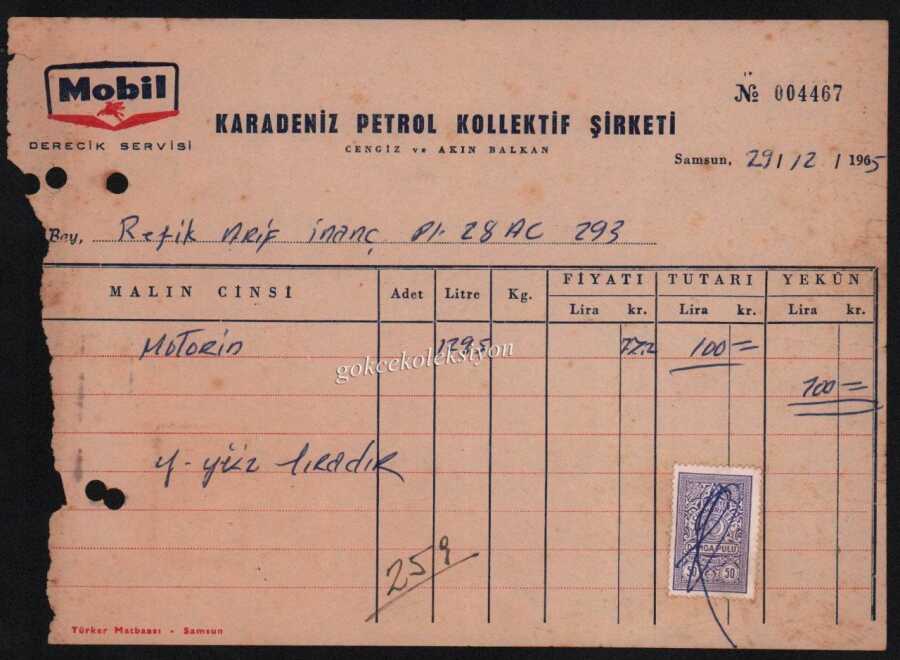 Mobil
DERECİK SERVİSİ
№ 004467
KARADENİZ PETROL KOLLEKTİF ŞİRKETİ
CENGİZ ve AKIN BALKAN
Samsun, 29/12/1965
Bay, Refik Arif İnanç Pl. 28 AC 293
MALIN CİNSİ Adet Litre Kg. FİYATI TUTARI YEKÛN
Lira kr. Lira kr. Lira kr.
Motorin 129,5 77.2 100=
100=
gokcekoleksiyon
Y- yüz liradır
259
DAMGA PULU
50 50
Türker Matbaası - Samsun